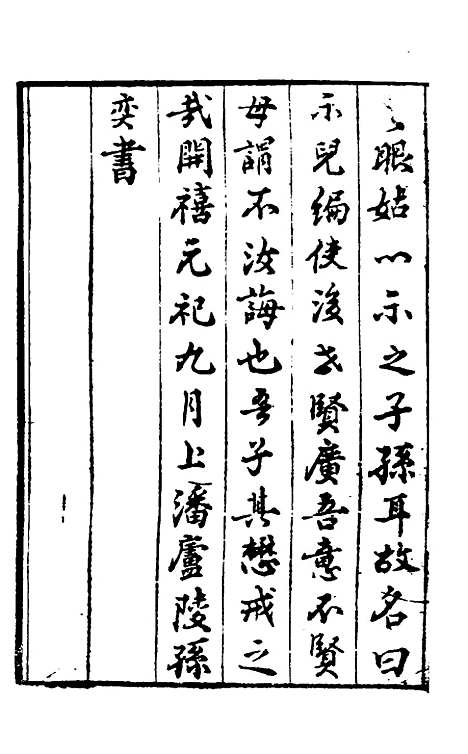 之眼姑以示之子孫耳故名曰
示兒編使後世賢廣吾意不賢
毋謂不汝誨也吾子其懋戒之
哉開禧元祀九月上澣廬陵孫
奕書